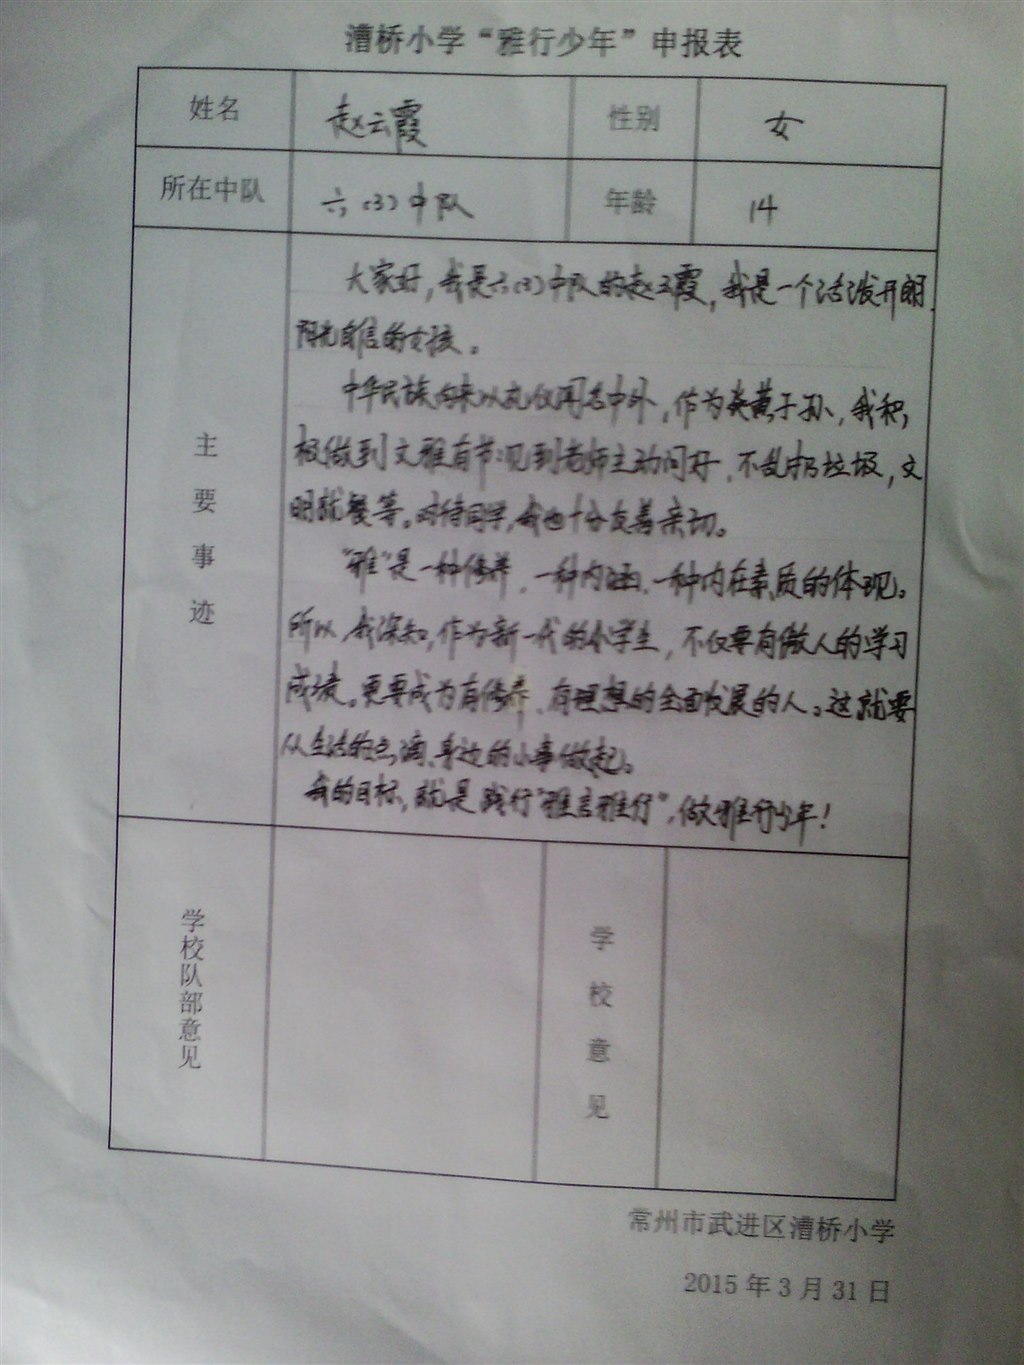 漕桥小学“雅行少年”申报表
姓名 赵云霞 性别 女
所在中队 六(3)中队 年龄 14
主要事迹
大家好,我是六(3)中队的赵云霞,我是一个活泼开朗
阳光自信的女孩。
中华民族向来以礼仪闻名中外,作为炎黄子孙,我积
极做到文雅有节:见到老师主动问好,不乱扔垃圾,文
明就餐等。对待同学,我也十分友善亲切。
“雅”是一种修养、一种内涵、一种内在素质的体现。
所以,我深知,作为新一代的小学生,不仅要有傲人的学习
成绩。更要成为有修养、有理想的全面发展的人。这就要
从生活的点滴、身边的小事做起。
我的目标,就是践行“雅言雅行”,做雅行少年!
学校队部意见
学校意见
常州市武进区漕桥小学
2015年3月31日